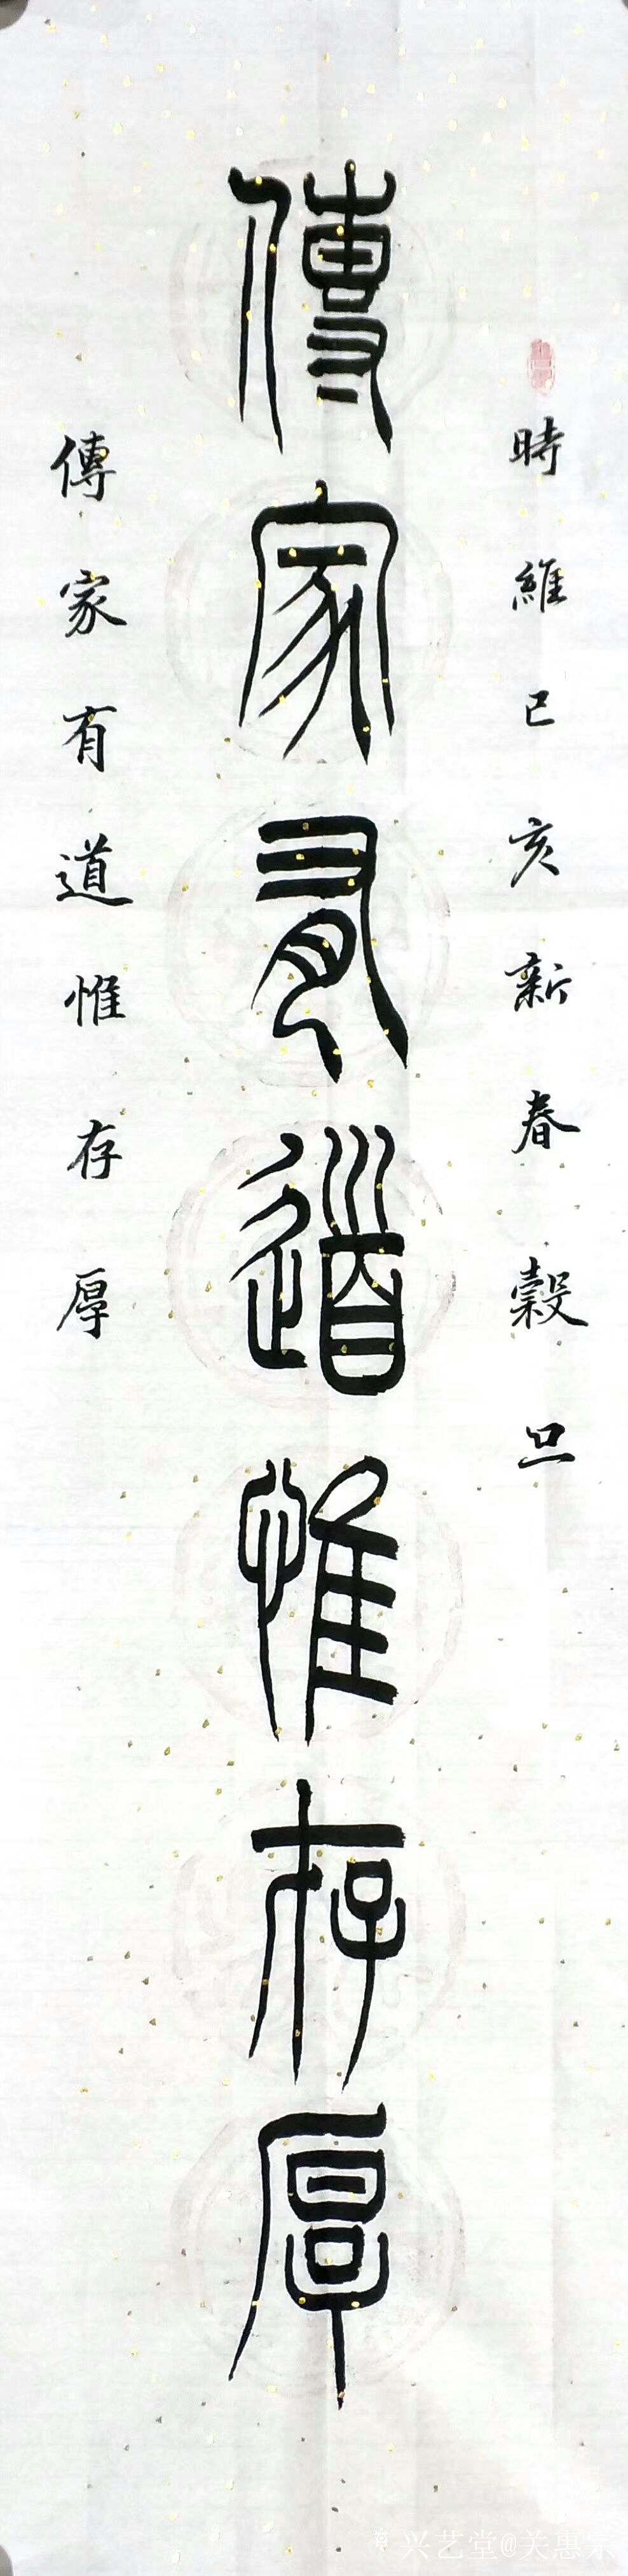 時維己亥新春穀旦
傳家有道惟存厚
傳家有道惟存厚
兴艺堂@关惠宗